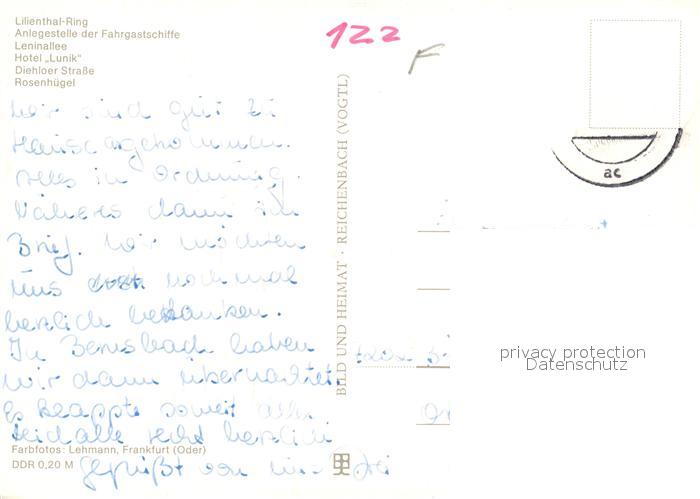 Lilienthal-Ring
Anlegestelle der Fahrgastschiffe
Leninallee
Hotel „Lunik"
Diehloer Straße
Rosenhügel
122
F
wir sind gut zu
Hause angekommen.
Alles in Ordnung.
Näheres dann im
Brief. Wir möchten
uns noch mal
herzlich bedanken.
In Bernsbach haben
wir dann übernachtet.
Es klappte soweit alles
Seid alle recht herzlich
gegrüßt von uns drei
Farbfotos: Lehmann, Frankfurt (Oder)
DDR 0,20 M
BILD UND HEIMAT · REICHENBACH (VOGTL)
ac
privacy protection
Datenschutz